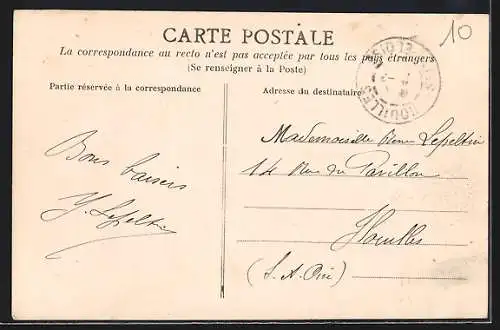 CARTE POSTALE
10
La correspondance au recto n'est pas acceptée par tous les pays étrangers
(Se renseigner à la Poste)
Partie réservée à la correspondance
Adresse du destinataire
HOUILLES
Bons baisers
Y. Lepeltier
Mademoiselle Lepeltier
14 Rue du Pavillon
Houilles
(S. & Oise)